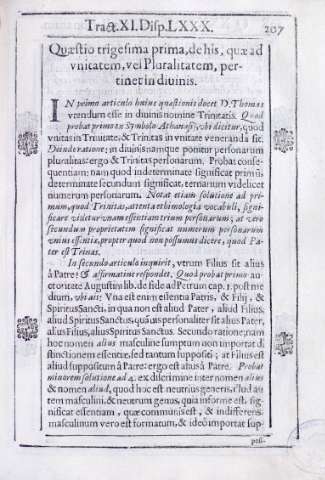 Tract. XI. Disp. LXXX. 207
Quæstio trigesima prima, de his, quæ ad
vnicatem, vel Pluralitatem, per-
tinet in diuinis.
IN primo articulo huius quæstionis docet D. Thomas
vtendum esse in diuinis nomine Trinitatis. Quod
probat primo ex Symbolo Athanasij, vbi dicitur, quod
vnitas in Trinitate, & Trinitas in vnitate veneranda sit.
Deinde ratione: in diuinis namque ponitur personarum
pluralitas: ergo & Trinitas personarum. Probat conse-
quentiam: nam quod indeterminate significat primis
determinate secundum significat, ternarium videlicet
numerum personarum. Notat etiam solutione ad pri-
mum, quod Trinitas, attenta ethimologia vocabuli, signi-
ficare videtur vnam essentiam trium personarum; at vero
secundum proprietatem significat numerum personarum
vnius essentiæ, propter quod non possumus dicere, quod Pa-
ter est Trinas.
In secundo articulo inquirit, vtrum Filius sit alius
à Patre? & affirmatiue respondet. Quod probat primo au-
ctoritate Augustini lib. de fide ad Petrum cap. 1. post me
dium, vbi ait: Vna est enim essentia Patris, & Filij, &
Spiritus Sancti, in qua non est aliud Pater, aliud Filius,
aliud Spiritus Sanctus, quáuis personaliter sit alius Pater,
alius Filius, alius Spiritus Sanctus. Secundo ratione; nam
hoc nomen alius masculine sumptum non importat di
stinctionem essentiæ, sed tantum suppositi; at Filius est
aliud suppositum à Patre: ergo est alius à Patre. Probat
minorem solutione ad 4. ex discrimine inter nomen alius
& nomen aliud, quod hoc est neutrius generis, illud au
tem masculini, & neutrum genus, quia informe est, sig-
nificat essentiam, quæ communis est, & indifferens
masculinum vero est formatum, & ideò importat sup-
posi-